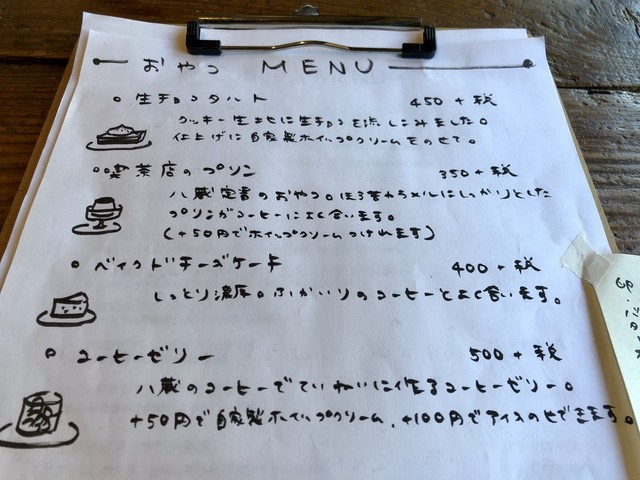 おやつ MENU
生チョコタルト 450+税
クッキー生地に生チョコを流しこみました。
仕上げに自家製ホイップクリームをのせて。
喫茶店のプリン 350+税
八蔵定番のおやつ。ほろ苦カラメルにしっかりとした
プリンがコーヒーによく合います。
(+50円でホイップクリームつけれます)
ベイクドチーズケーキ 400+税
しっとり濃厚。ふかいりのコーヒーとよく合います。
コーヒーゼリー 500+税
八蔵のコーヒーでていねいに作るコーヒーゼリー。
+50円で自家製ホイップクリーム、+100円でアイスのせできます。